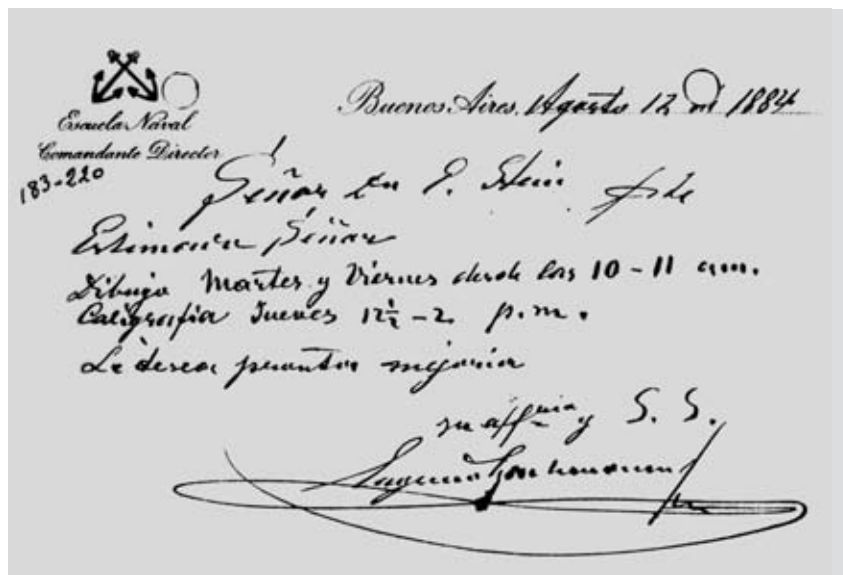 Escuela Naval
Comandante Director
183-220
Buenos Aires, Agosto 12 de 1884
Señor Dn E. Stein Pte
Estimado Señor
Dibujo Martes y Viernes desde las 10 - 11 a.m.
Caligrafia Jueves 12½ - 2 p.m.
Le desea pronta mejoria
su aff y S. S.
Eugenio